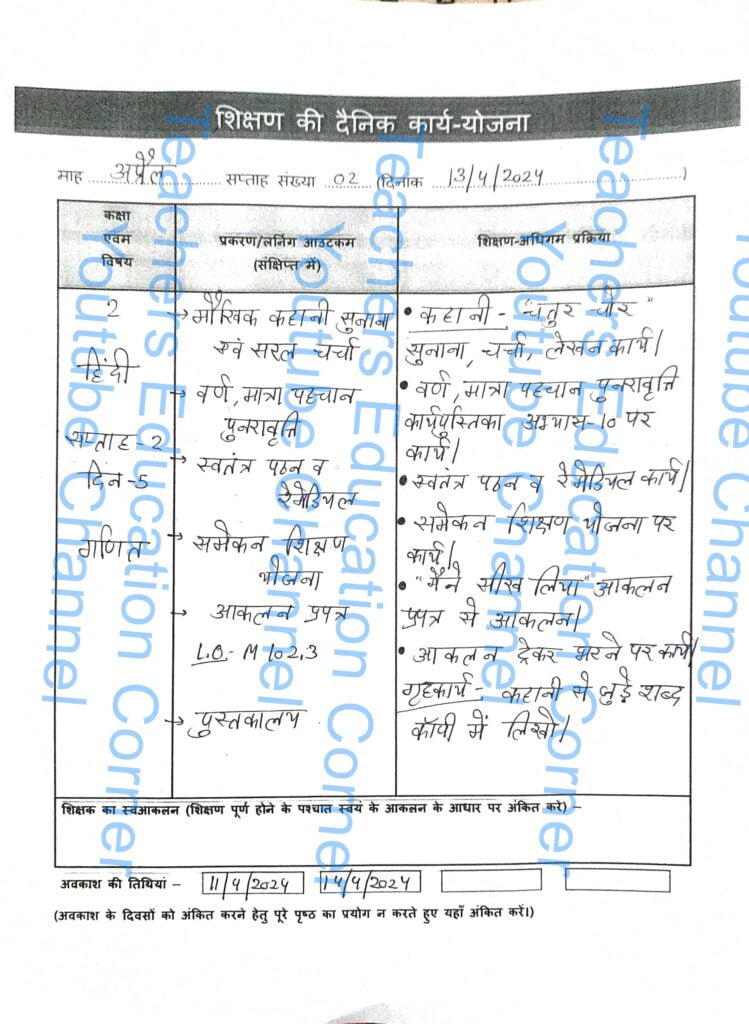 शिक्षण की दैनिक कार्य-योजना
माह अप्रैल सप्ताह संख्या 02 (दिनांक 13/4/2024)
कक्षा
एवम
विषय
प्रकरण/लर्निंग आउटकम
(संक्षिप्त में)
शिक्षण-अधिगम प्रक्रिया
2
हिंदी
सप्ताह-2
दिन-5
गणित
→ मौखिक कहानी सुनाना
एवं सरल चर्चा
→ वर्ण, मात्रा पहचान
पुनरावृत्ति
→ स्वतंत्र पठन व
रेमेडियल
→ समेकन शिक्षण
योजना
→ आकलन प्रपत्र
L.O.- M 102.3
→ पुस्तकालय
• कहानी - "चतुर चोर"
सुनाना, चर्चा, लेखन कार्य।
• वर्ण, मात्रा पहचान पुनरावृत्ति
कार्यपुस्तिका अभ्यास-10 पर
कार्य।
• स्वतंत्र पठन व रेमेडियल कार्य।
• समेकन शिक्षण योजना पर
कार्य।
• "मैंने सीख लिया" आकलन
प्रपत्र से आकलन।
• आकलन ट्रेकर भरने पर कार्य।
गृहकार्य - कहानी से जुड़े शब्द
कॉपी में लिखो।
शिक्षक का स्वआकलन (शिक्षण पूर्ण होने के पश्चात स्वयं के आकलन के आधार पर अंकित करे) –
अवकाश की तिथियां – 11/4/2024 14/4/2024
(अवकाश के दिवसों को अंकित करने हेतु पूरे पृष्ठ का प्रयोग न करते हुए यहाँ अंकित करें।)
Teachers Education Corner
Youtube Channel
Teachers Education Corner
Youtube Channel
Teachers Education Corner
Youtube Channel